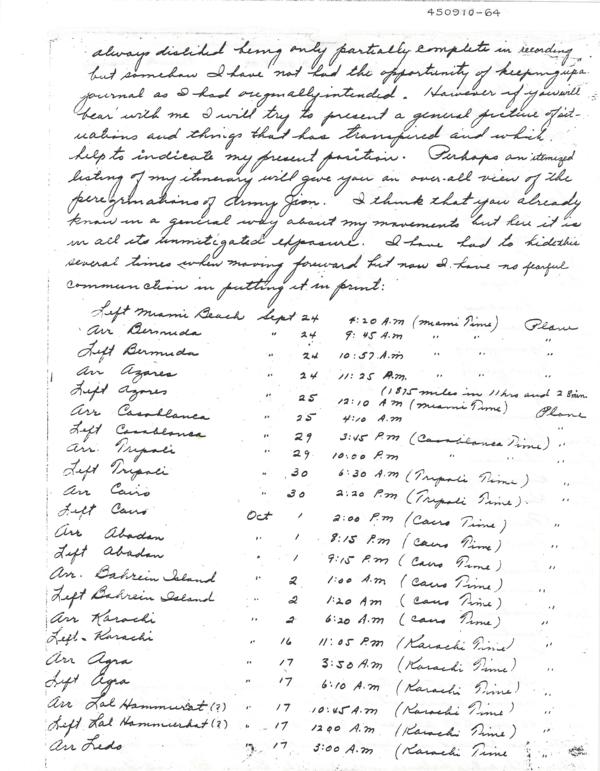 450910-64
always disliked being only partially complete in recording
but somehow I have not had the opportunity of keeping up a
journal as I had originally intended. However if you will
bear with me I will try to present a general picture of sit-
uations and things that has transpired and which
help to indicate my present position. Perhaps an itemized
listing of my itinerary will give you an over-all view of the
peregrinations of Army Jion. I think that you already
know in a general way about my movements but here it is
in all its unmitigated exposure. I have had to hide this
several times when moving forward but now I have no fearful
communction in putting it in print:
Left Miami Beach Sept 24 4:20 A.M (Miami Time) Plane
Arr Bermuda " 24 9:45 A.M " " "
Left Bermuda " 24 10:57 A.M " " "
Arr Azores " 24 11:25 P.M. " " "
(1875 miles in 11 hrs and 28 min.
Left Azores " 25 12:10 A M (Miami Time) Plane
Arr Casablanca " 25 4:10 A.M
Left Casablanca " 29 3:45 P.M (Casablanca Time) "
Arr. Tripoli " 29 10:00 P.M " " "
Left Tripoli " 30 6:30 A.M (Tripoli Time) "
Arr Cairo " 30 2:20 P.M (Tripoli Time) "
Left Cairo Oct 1 2:00 P.M (Cairo Time) "
Arr Abadan " 1 8:15 P.M (Cairo Time) "
Left Abadan " 1 9:15 P.M (Cairo Time) "
Arr. Bahrein Island " 2 1:00 A.M (Cairo Time) "
Left Bahrein Island " 2 1:20 A.M (Cairo Time) "
Arr Karachi " 2 6:20 A.M (Cairo Time) "
Left - Karachi " 16 11:05 P.M (Karachi Time) "
Arr Agra " 17 3:50 A.M (Karachi Time) "
Left Agra " 17 6:10 A.M (Karachi Time) "
Arr Lal Hammurhat (?) " 17 10:45 A.M (Karachi Time) "
Left Lal Hammurhat (?) " 17 12:00 A.M (Karachi Time) "
Arr Ledo " 17 3:00 A.M (Karachi Time "